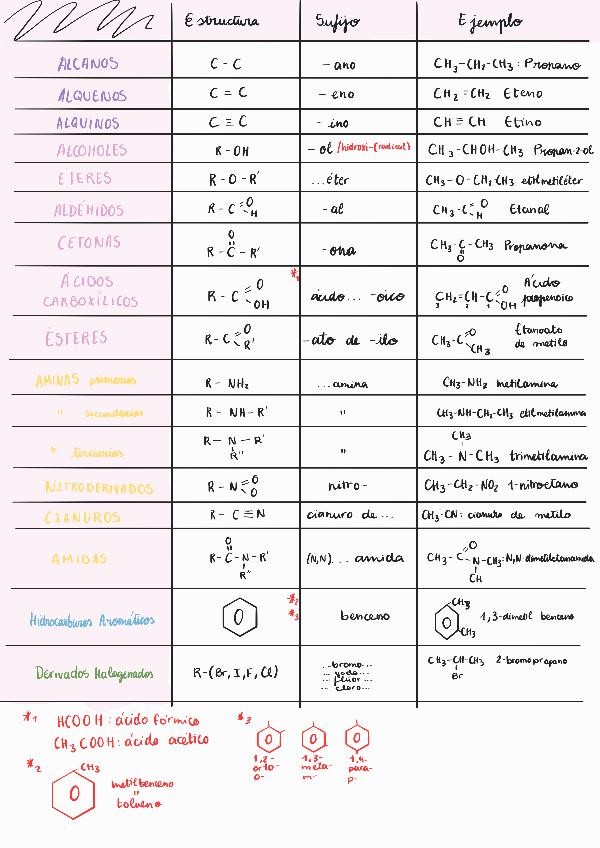 Estructura Sufijo Ejemplo
ALCANOS C - C -ano CH₃-CH₂-CH₃: Propano
ALQUENOS C = C -eno CH₂=CH₂ Eteno
ALQUINOS C ≡ C -ino CH≡CH Etino
ALCOHOLES R-OH -ol /hidroxi-(radical) CH₃-CHOH-CH₃ Propan-2-ol
ÉTERES R-O-R' ...éter CH₃-O-CH₂CH₃ etilmetiléter
ALDÉHIDOS R-C O H -al CH₃-C O H Etanal
CETONAS R-C-R' O -ona CH₃-C-CH₃ O Propanona
ÁCIDOS
CARBOXÍLICOS R-C O OH *1 ácido... -oico CH₂=CH-C O OH Ácido
propenoico
ÉSTERES R-C O R' -ato de -ilo CH₃-C O CH₃ Etanoato
de metilo
AMINAS primarias R-NH₂ ...amina CH₃-NH₂ metilamina
" secundarias R-NH-R' " CH₃-NH-CH₂-CH₃ etilmetilamina
" terciarias R-N-R' R'' " CH₃-N-CH₃ CH₃ trimetilamina
NITRODERIVADOS R-N O O nitro- CH₃-CH₂-NO₂ 1-nitroetano
CIANUROS R-C≡N cianuro de... CH₃-CN: cianuro de metilo
AMIDAS R-C-N-R' O R'' (N,N)... amida CH₃-C O N-CH₃ CH N,N-dimetiletanamida
Hidrocarburos Aromáticos *2 *3 benceno CH₃ CH₃ 1,3-dimetil benceno
Derivados Halogenados R-(Br, I, F, Cl) ...bromo...
...yodo...
...fluor...
...cloro... CH₃-CH-CH₃ Br 2-bromopropano
*1 HCOOH: ácido fórmico
CH₃COOH: ácido acético
*2 CH₃ metilbenceno
"
tolueno
*3 1,2- 1,3- 1,4-
orto- meta- para-
o- m- p-